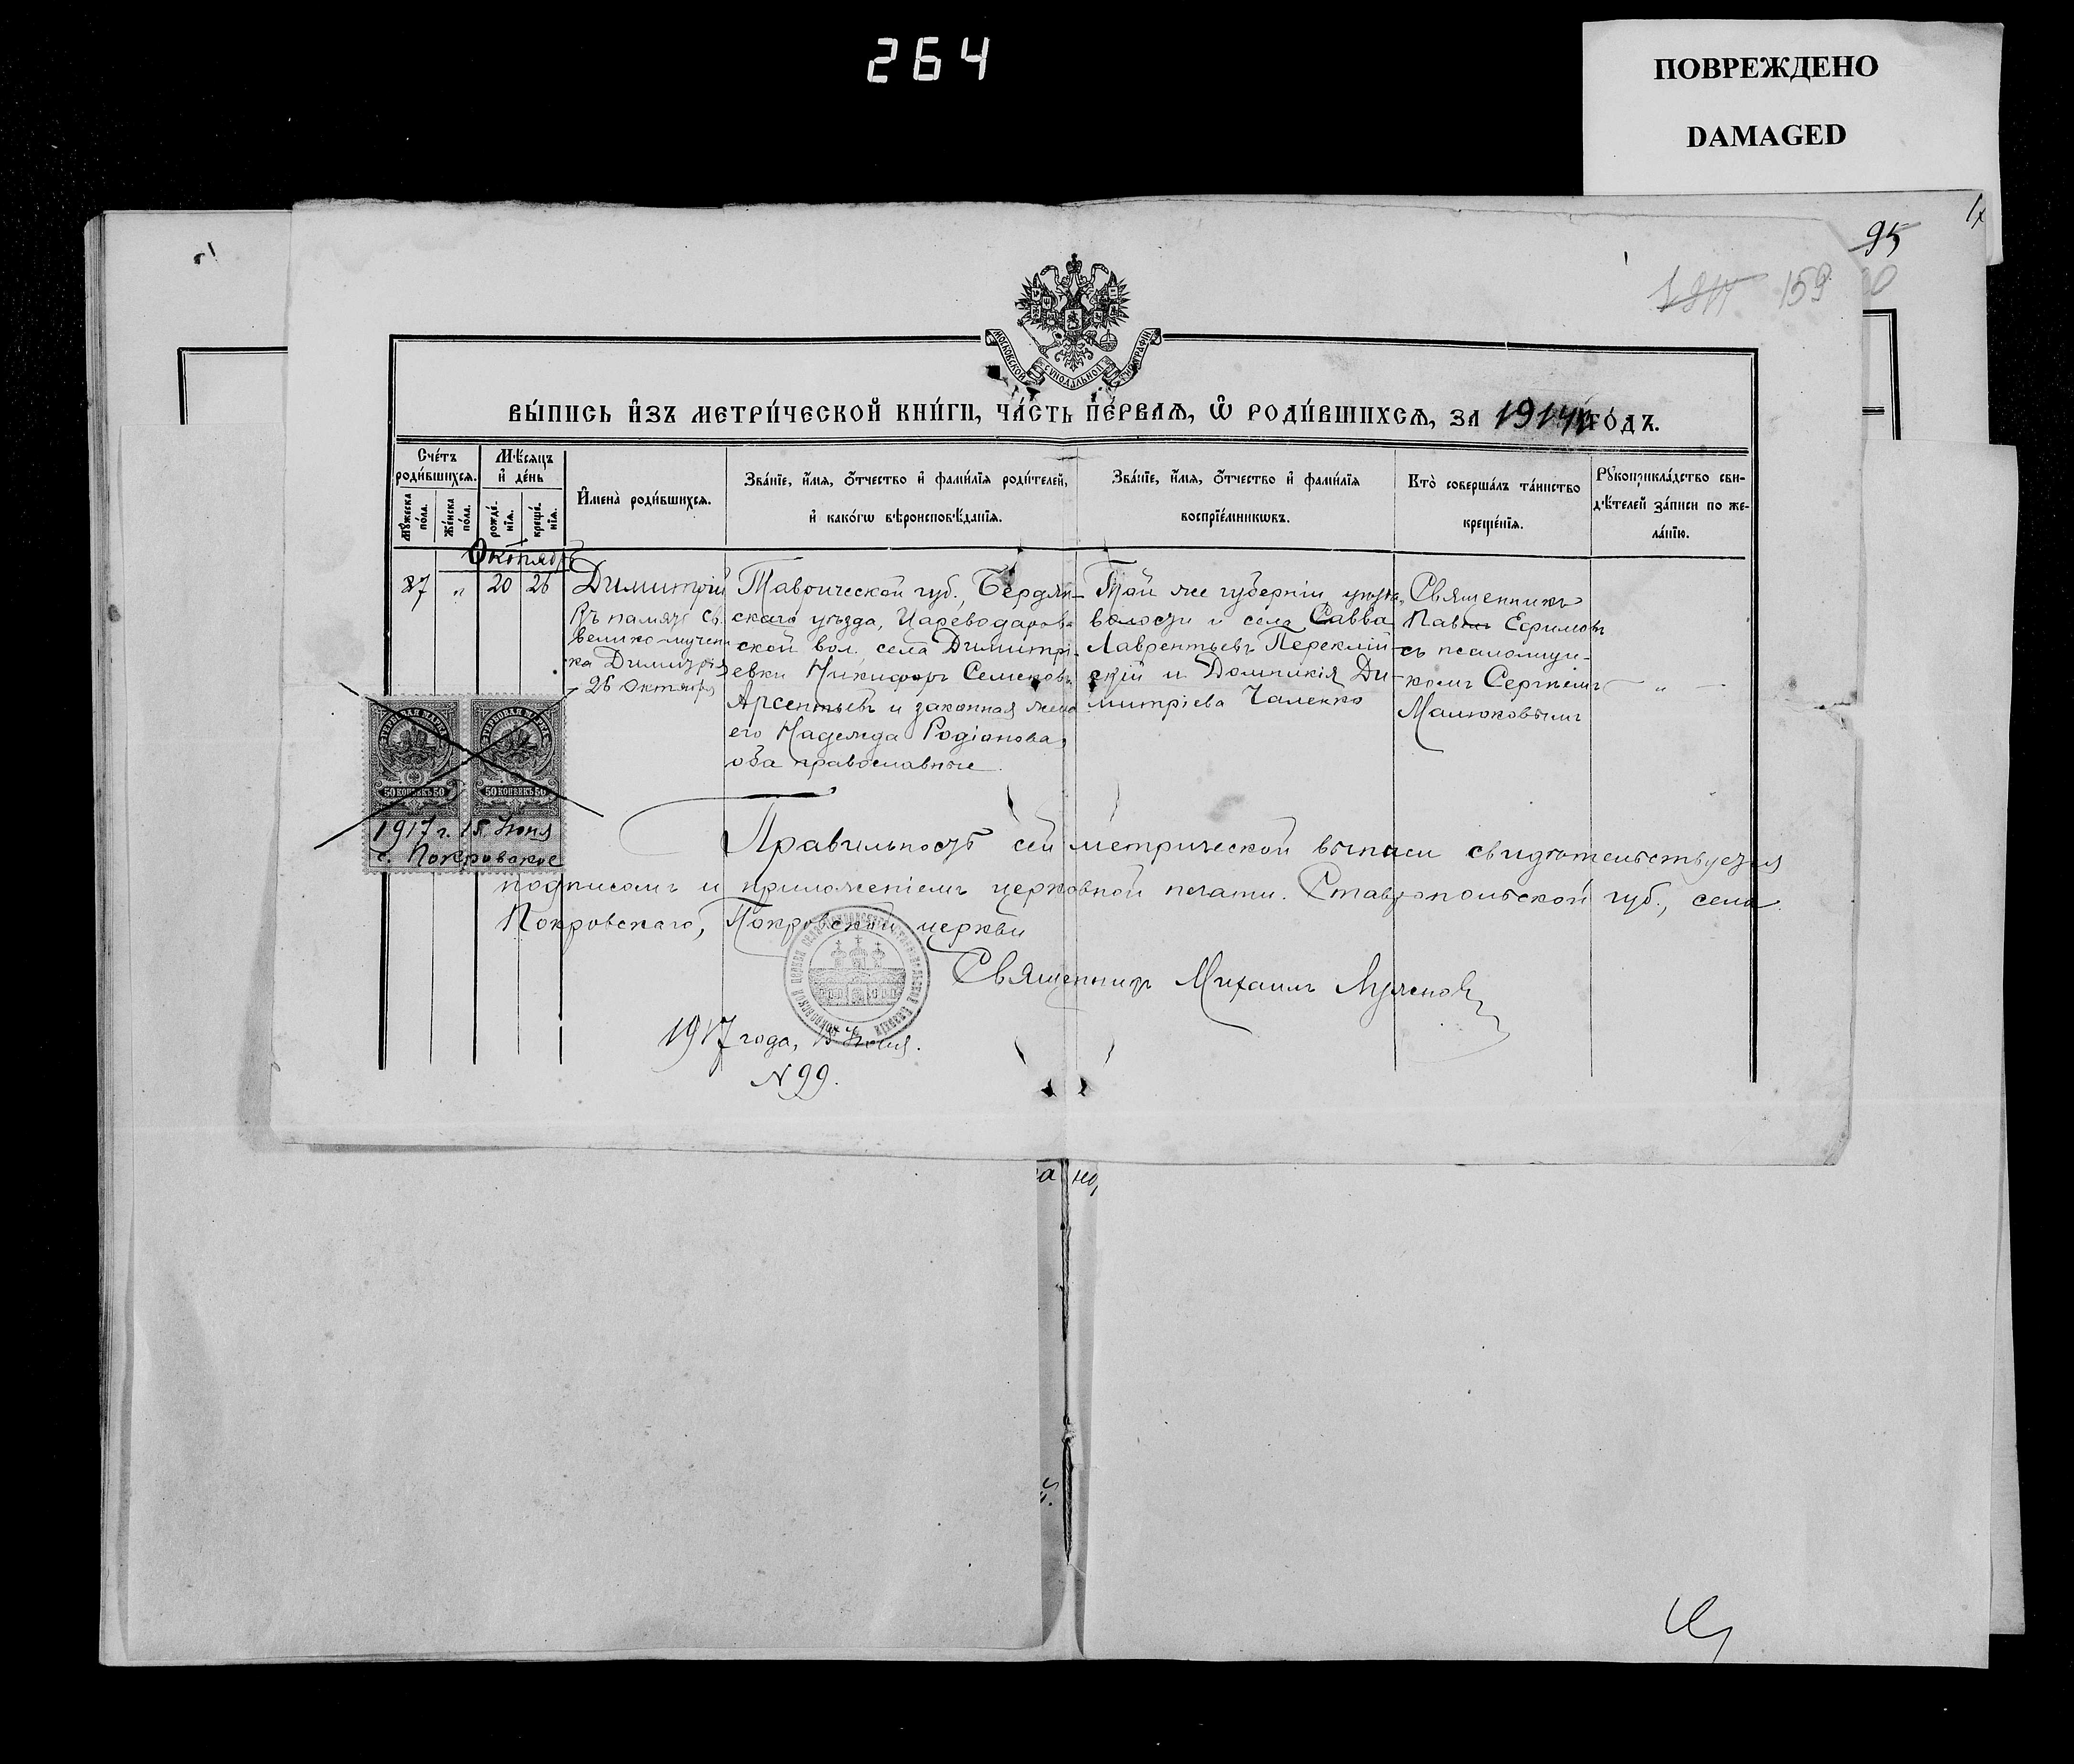 264
ПОВРЕЖДЕНО
DAMAGED
95
159
МОСКОВСКОЙ СѴНОДАЛЬНОЙ ТИПОГРАФІИ
ВЫ́ПИСЬ И҆́ЗЪ МЕТРИ́ЧЕСКОЙ КНИ́ГИ, ЧА́СТЬ ПЕ́РВАѦ, Ѽ РОДИ́ВШИХСѦ, ЗА 1914 ГО́ДЪ.
Сче́тъ роди́вшихсѧ.
Мꙋ́жеска по́ла.
Же́нска по́ла.
Мѣ́сѧцъ и҆ де́нь
рожде́нїѧ.
креще́нїѧ.
И҆мена̀ роди́вшихсѧ.
Зва́нїе, и҆́мѧ, ѻ҆́тчество и҆ фами́лїѧ роди́телей,
и҆ како́гѡ вѣроисповѣ́данїѧ.
Зва́нїе, и҆́мѧ, ѻ҆́тчество и҆ фами́лїѧ
воспрїе́мникѡвъ.
Кто̀ соверша́лъ та́инство
креще́нїѧ.
Рꙋкоприкла́дство сви-
дѣ́телей за́писи по же-
ла́нїю.
Октябрь
87 „ 20 26
Димитрій
Въ память св.
великомучени
ка Димитрія
26 Октября
Таврической губ., Бердян-
скаго уѣзда, Цареводаров-
ской вол. села Димитрі-
евки Никифоръ Семеновъ
Арсентьевъ и законная жена
его Надежда Родіонова,
оба православные
Той же губерніи, уѣзда,
волости и села Савва
Лаврентьевъ
и Домникія Ди-
митріева Чаленко
Священникъ
Павелъ Ефимовъ
съ псаломщи-
комъ Сергѣемъ
Малюковымъ
„
ГЕРБОВАЯ МАРКА
50 КОПѢЕКЪ 50
ГЕРБОВАЯ МАРКА
50 КОПѢЕКЪ 50
1917 г. 15 Іюня
с. Покровское
Правильность сей метрической выписи свидѣтельствуется
подписомъ и приложеніемъ церковной печати. Ставропольской губ., села
Покровскаго, Покровской церкви
Священникъ Михаилъ
1917 года, 15 Іюня.
N 99.
а но,